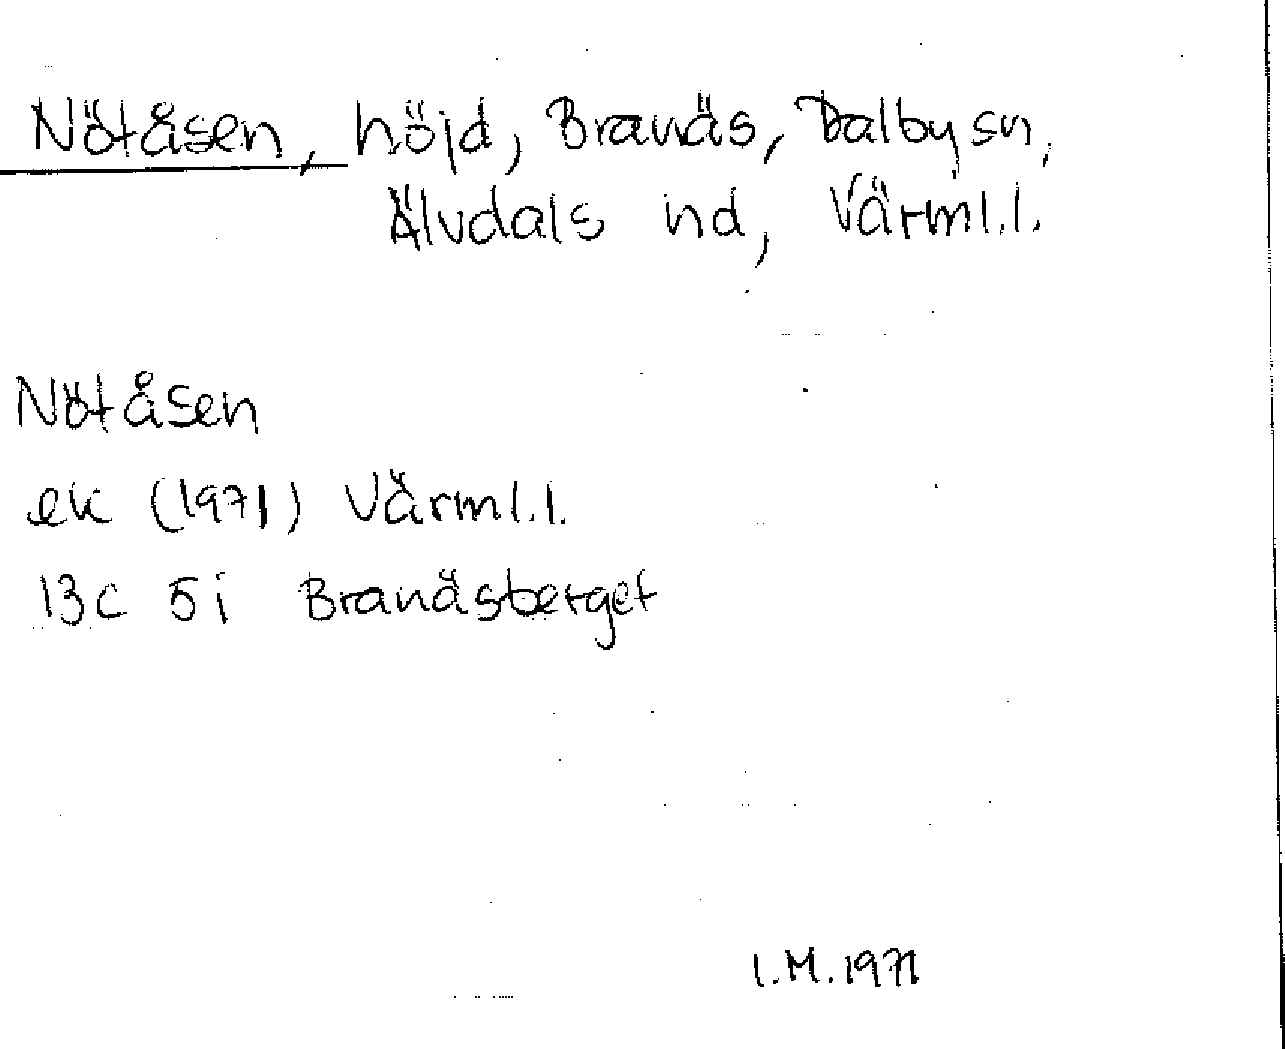 Nötåsen, höjd, Branäs, Dalby sn,
Älvdals hd, Värml.l.
Nötåsen
ek (1971) Värml.l.
13c 5i Branäsberget
I.M.1971